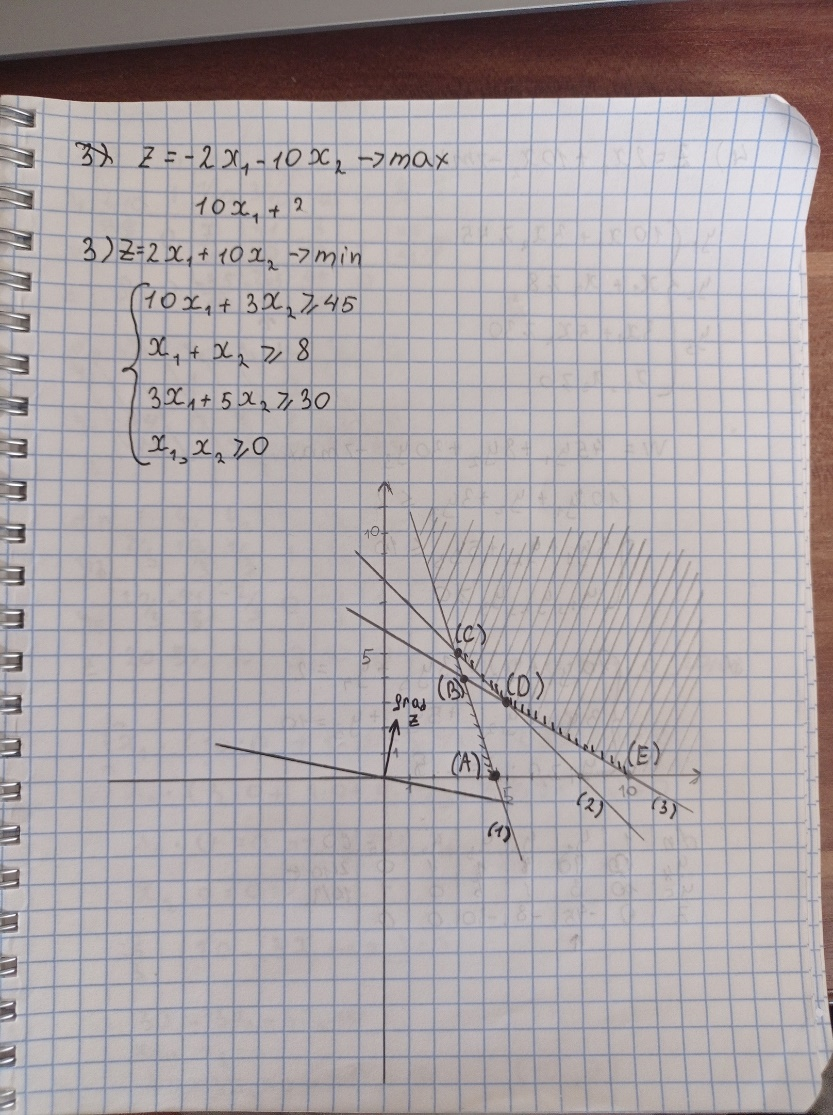 3) Z = -2x₁ - 10x₂ → max
10x₁ + 2
3) Z = 2x₁ + 10x₂ → min
10x₁ + 3x₂ ≥ 45
x₁ + x₂ ≥ 8
3x₁ + 5x₂ ≥ 30
x₁, x₂ ≥ 0
10
(C)
5
(B) (D)
grad
z
1
(A) (E)
1 5 10
(2) (3)
(1)